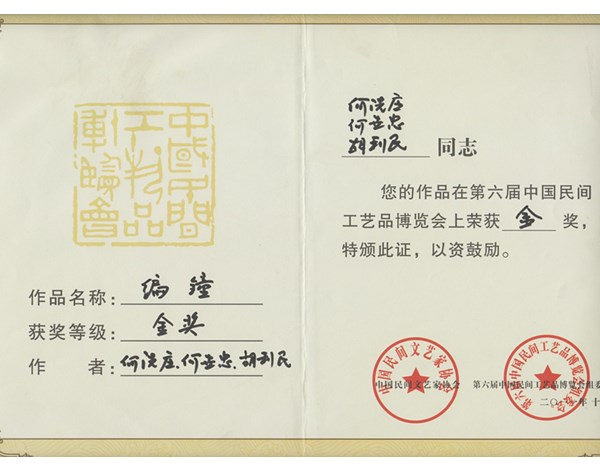 中國民間
工藝品
博覽會
作品名称：编鐘
获奖等级：金奖
作 者：何洪庄、何亚忠、胡利民
何洪庄
何亚忠
胡利民 同志
您的作品在第六届中国民间
工艺品博览会上荣获 金 奖，
特颁此证，以资鼓励。
中国民间文艺家协会
第六届中国民间工艺品博览会组委会
中国民间文艺家协会 第六届中国民间工艺品博览会组委